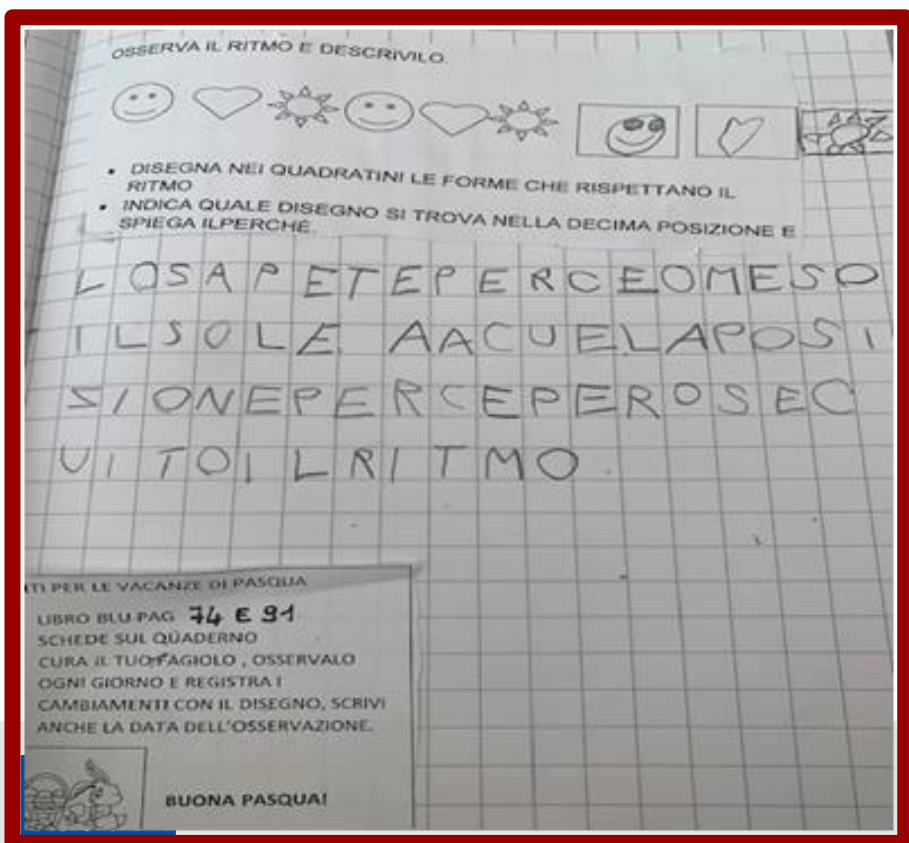 OSSERVA IL RITMO E DESCRIVILO.
• DISEGNA NEI QUADRATINI LE FORME CHE RISPETTANO IL
RITMO
• INDICA QUALE DISEGNO SI TROVA NELLA DECIMA POSIZIONE E
SPIEGA ILPERCHÉ.
LOSAPETEPERCEOMESO
ILSOLE AACUELAPOSI
SIONEPERCEPEROSEC
UITOILRITMO.
TI PER LE VACANZE DI PASQUA
LIBRO BLU PAG 74 E 91
SCHEDE SUL QUADERNO
CURA IL TUO FAGIOLO, OSSERVALO
OGNI GIORNO E REGISTRA I
CAMBIAMENTI CON IL DISEGNO, SCRIVI
ANCHE LA DATA DELL'OSSERVAZIONE.
BUONA PASQUA!